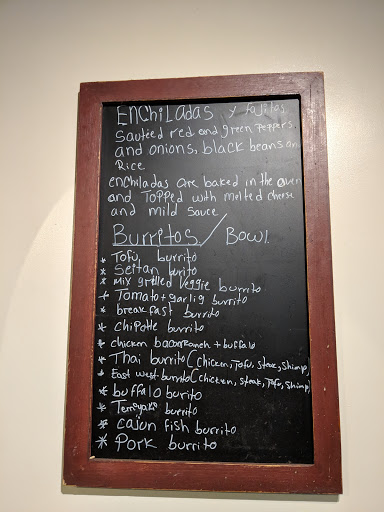 Enchiladas y fajitas
Sautéed red and green peppers
and onions, black beans an
Rice
enchiladas are baked in the oven
and Topped with melted cheese
and mild sauce
Burritos / Bowl.
* Tofu burrito
* Seitan burito
* Mix grilled Veggie burrito
* Tomato + garlig burrito
* breakfast burrito
* chipotle burrito
* chicken bacon Ranch + buffalo
* Thai burrito (Chicken, Tofu, steak, Shrimp)
* East west burrito (chicken, steak, Tofu, Shimp)
* buffalo burito
* Terriyaki burrito
* cajun fish burrito
* Pork burrito